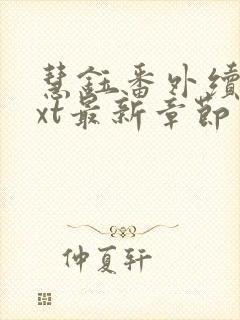 慧鈺番外續
xt最新章節
仲夏轩